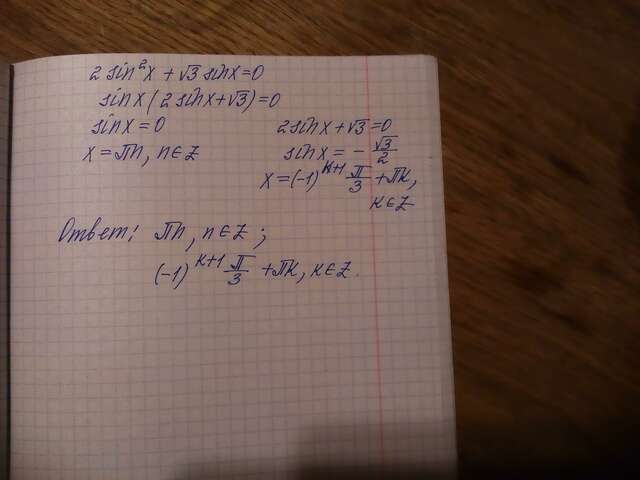 2 sin²x + √3 sinx = 0
sinx (2 sinx + √3) = 0
sinx = 0
x = πn, n ∈ Z
2 sinx + √3 = 0
sinx = - √3/2
x = (-1)^(k+1) π/3 + πk,
k ∈ Z
Ответ: πn, n ∈ Z;
(-1)^(k+1) π/3 + πk, k ∈ Z.